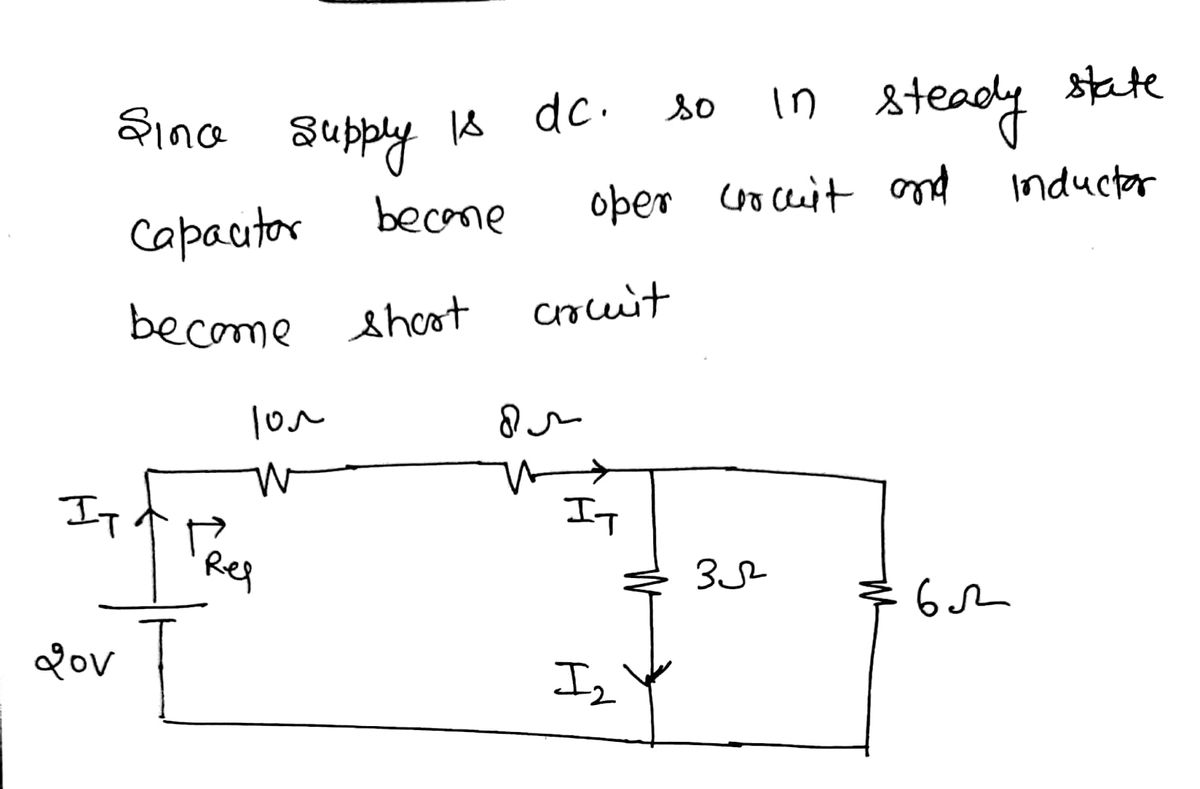 Since supply is dc. so in steady state
capacitor become open circuit and inductor
become short circuit
10Ω 8Ω
I_T Req I_T 3Ω 6Ω
20V I₂